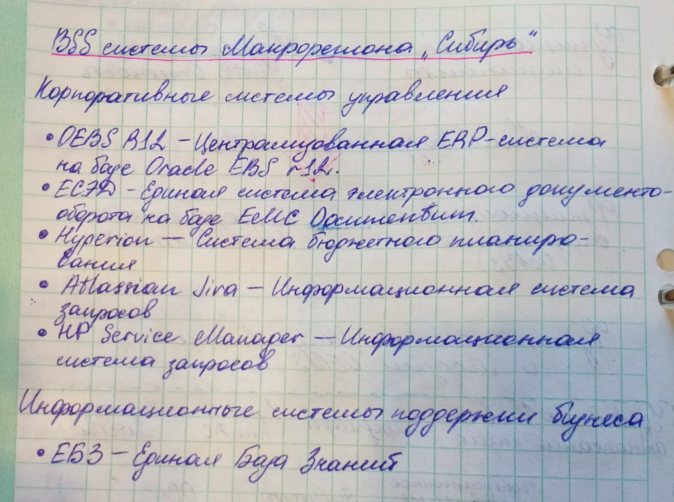 BSS системы Макрорегиона „Сибирь"
Корпоративные системы управления
• OEBS R12 – Централизованная ERP-система
на базе Oracle EBS r12.
• ЕСЭД – Единая система электронного документо-
оборота на базе EMC Documentum.
• Hyperion – Система бюджетного планиро-
вания
• Atlassian Jira – Информационная система
запросов
• HP Service Manager – Информационная
система запросов
Информационные системы поддержки бизнеса
• ЕБЗ – Единая База Знаний